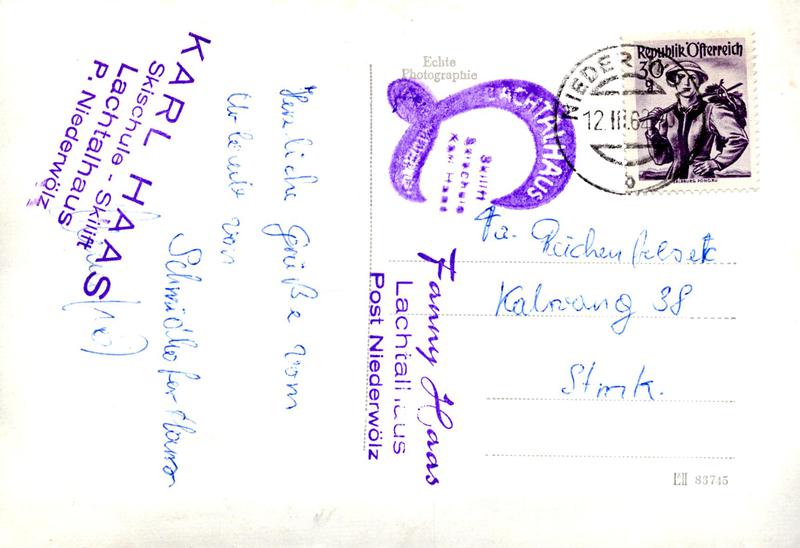 KARL HAAS
Skischule - Skilift
Lachtalhaus
P. Niederwölz
Herzliche Grüße vom
Urlaub von
Schmidhofer Hans
Echte
Photographie
LACHTALHAUS
Skilift
Skischule
Karl Haas
NIEDER
12.III.62
b
Republik Österreich
30 g
SALZBURG PONGAU
Fanny Haas
Lachtalhaus
Post Niederwölz
Fa. Reichenfelser
Kalwang 38
Stmk.
EII 83745